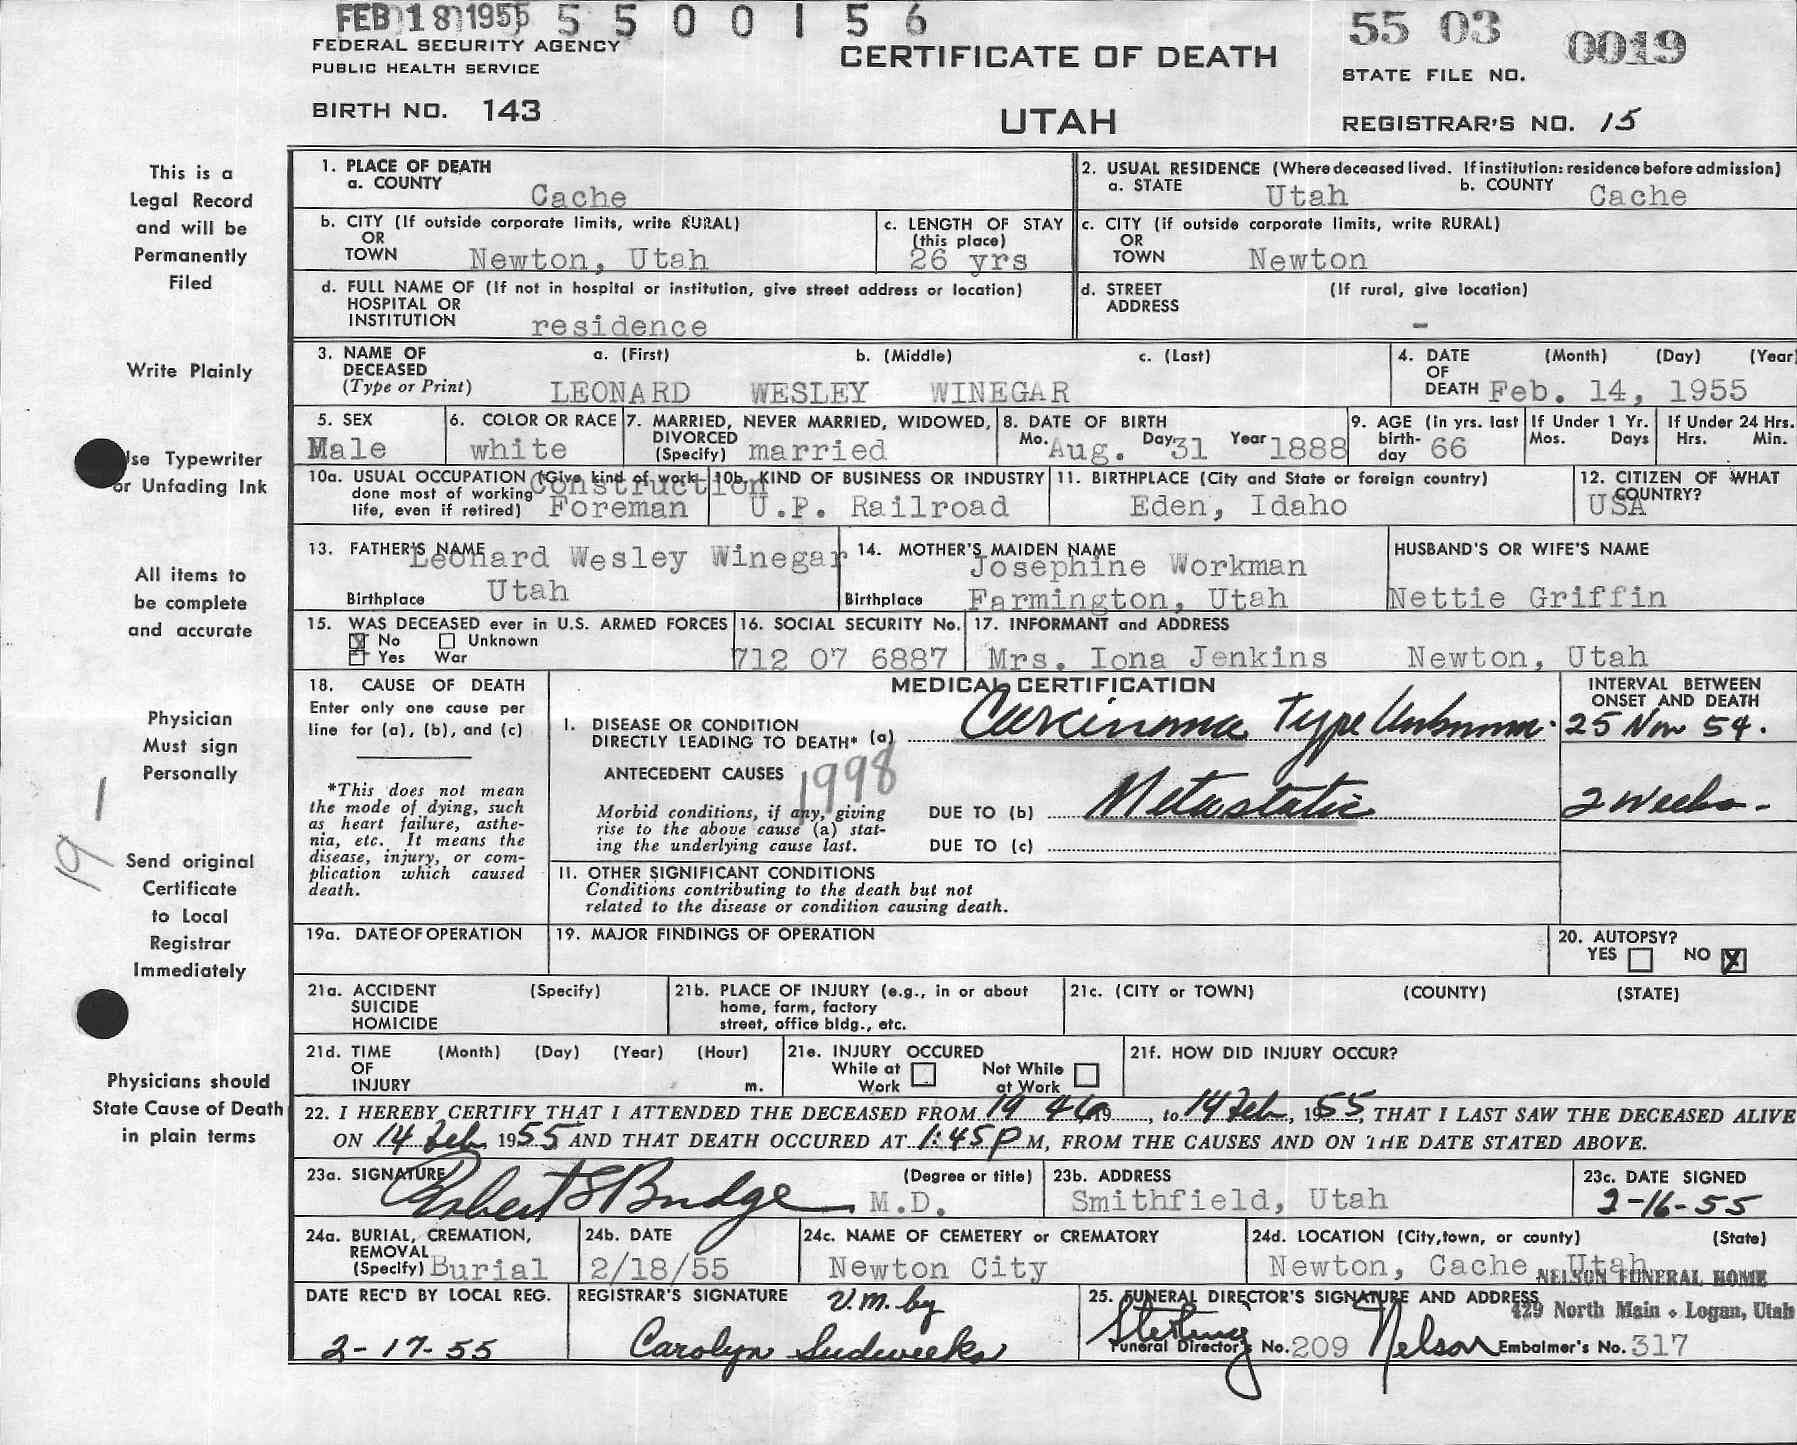 FEB 18 1955 5 5 0 0 1 5 6
55 03 0019
FEDERAL SECURITY AGENCY
PUBLIC HEALTH SERVICE
CERTIFICATE OF DEATH
STATE FILE NO.
BIRTH NO. 143
UTAH
REGISTRAR'S NO. 15
This is a
Legal Record
and will be
Permanently
Filed
Write Plainly
Use Typewriter
or Unfading Ink
All items to
be complete
and accurate
Physician
Must sign
Personally
19 -
Send original
Certificate
to Local
Registrar
Immediately
Physicians should
State Cause of Death
in plain terms
1. PLACE OF DEATH
a. COUNTY Cache
2. USUAL RESIDENCE (Where deceased lived. If institution: residence before admission)
a. STATE Utah b. COUNTY Cache
b. CITY (If outside corporate limits, write RURAL)
OR
TOWN Newton, Utah
c. LENGTH OF STAY
(this place)
26 yrs
c. CITY (if outside corporate limits, write RURAL)
OR
TOWN Newton
d. FULL NAME OF (If not in hospital or institution, give street address or location)
HOSPITAL OR
INSTITUTION residence
d. STREET (If rural, give location)
ADDRESS -
3. NAME OF a. (First) b. (Middle) c. (Last)
DECEASED
(Type or Print) LEONARD WESLEY WINEGAR
4. DATE (Month) (Day) (Year)
OF
DEATH Feb. 14, 1955
5. SEX
Male
6. COLOR OR RACE
white
7. MARRIED, NEVER MARRIED, WIDOWED,
DIVORCED
(Specify) married
8. DATE OF BIRTH
Mo. Aug. Day 31 Year 1888
9. AGE (in yrs. last
birth-
day 66
If Under 1 Yr.
Mos. Days
If Under 24 Hrs.
Hrs. Min.
10a. USUAL OCCUPATION (Give kind of work
done most of working
life, even if retired) Construction
Foreman
10b. KIND OF BUSINESS OR INDUSTRY
U.P. Railroad
11. BIRTHPLACE (City and State or foreign country)
Eden, Idaho
12. CITIZEN OF WHAT
COUNTRY?
USA
13. FATHER'S NAME Leonard Wesley Winegar
Birthplace Utah
14. MOTHER'S MAIDEN NAME
Josephine Workman
Birthplace Farmington, Utah
HUSBAND'S OR WIFE'S NAME
Nettie Griffin
15. WAS DECEASED ever in U.S. ARMED FORCES
No Unknown
Yes War
16. SOCIAL SECURITY No.
712 07 6887
17. INFORMANT and ADDRESS
Mrs. Iona Jenkins Newton, Utah
18. CAUSE OF DEATH
Enter only one cause per
line for (a), (b), and (c)
*This does not mean
the mode of dying, such
as heart failure, asthe-
nia, etc. It means the
disease, injury, or com-
plication which caused
death.
MEDICAL CERTIFICATION
INTERVAL BETWEEN
ONSET AND DEATH
I. DISEASE OR CONDITION
DIRECTLY LEADING TO DEATH* (a) Carcinoma Type Unknown. 25 Nov 54.
ANTECEDENT CAUSES 1998
Morbid conditions, if any, giving
rise to the above cause (a) stat-
ing the underlying cause last.
DUE TO (b) Metastatic 2 weeks -
DUE TO (c)
II. OTHER SIGNIFICANT CONDITIONS
Conditions contributing to the death but not
related to the disease or condition causing death.
19a. DATE OF OPERATION
19. MAJOR FINDINGS OF OPERATION
20. AUTOPSY?
YES NO X
21a. ACCIDENT (Specify)
SUICIDE
HOMICIDE
21b. PLACE OF INJURY (e.g., in or about
home, farm, factory
street, office bldg., etc.
21c. (CITY or TOWN) (COUNTY) (STATE)
21d. TIME (Month) (Day) (Year) (Hour)
OF
INJURY m.
21e. INJURY OCCURED
While at Not While
Work at Work
21f. HOW DID INJURY OCCUR?
22. I HEREBY CERTIFY THAT I ATTENDED THE DECEASED FROM 19 46 19, to 14 Feb, 1955, THAT I LAST SAW THE DECEASED ALIVE
ON 14 Feb 1955 AND THAT DEATH OCCURED AT 1:45 P M, FROM THE CAUSES AND ON THE DATE STATED ABOVE.
23a. SIGNATURE (Degree or title)
Robert S Budge M.D.
23b. ADDRESS
Smithfield, Utah
23c. DATE SIGNED
2-16-55
24a. BURIAL, CREMATION,
REMOVAL
(Specify) Burial
24b. DATE
2/18/55
24c. NAME OF CEMETERY or CREMATORY
Newton City
24d. LOCATION (City, town, or county) (State)
Newton, Cache Utah
NELSON FUNERAL HOME
429 North Main • Logan, Utah
DATE REC'D BY LOCAL REG.
2-17-55
REGISTRAR'S SIGNATURE V.M. by
Carolyn Sudweeks
25. FUNERAL DIRECTOR'S SIGNATURE AND ADDRESS
Sterling Nelson
Funeral Director's No. 209 Embalmer's No. 317